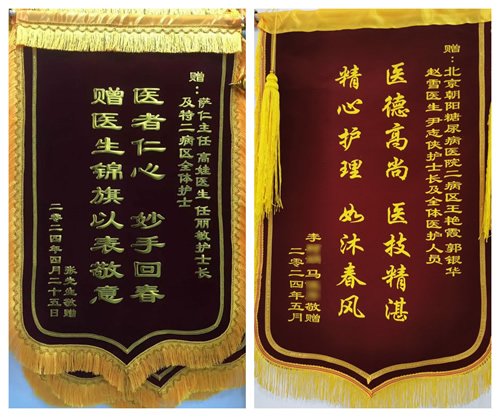 赠：萨仁主任 高娃医生 任丽敏护士长
及特二病区全体护士
医者仁心 妙手回春
赠医生锦旗以表敬意
张先生敬赠
二零二四年四月二十五日
赠：北京朝阳糖尿病医院二病区王艳霞 郭银华
赵雪医生 尹志侠护士长及全体医护人员
医德高尚 医技精湛
精心护理 如沐春风
李 马 敬赠
二零二四年五月